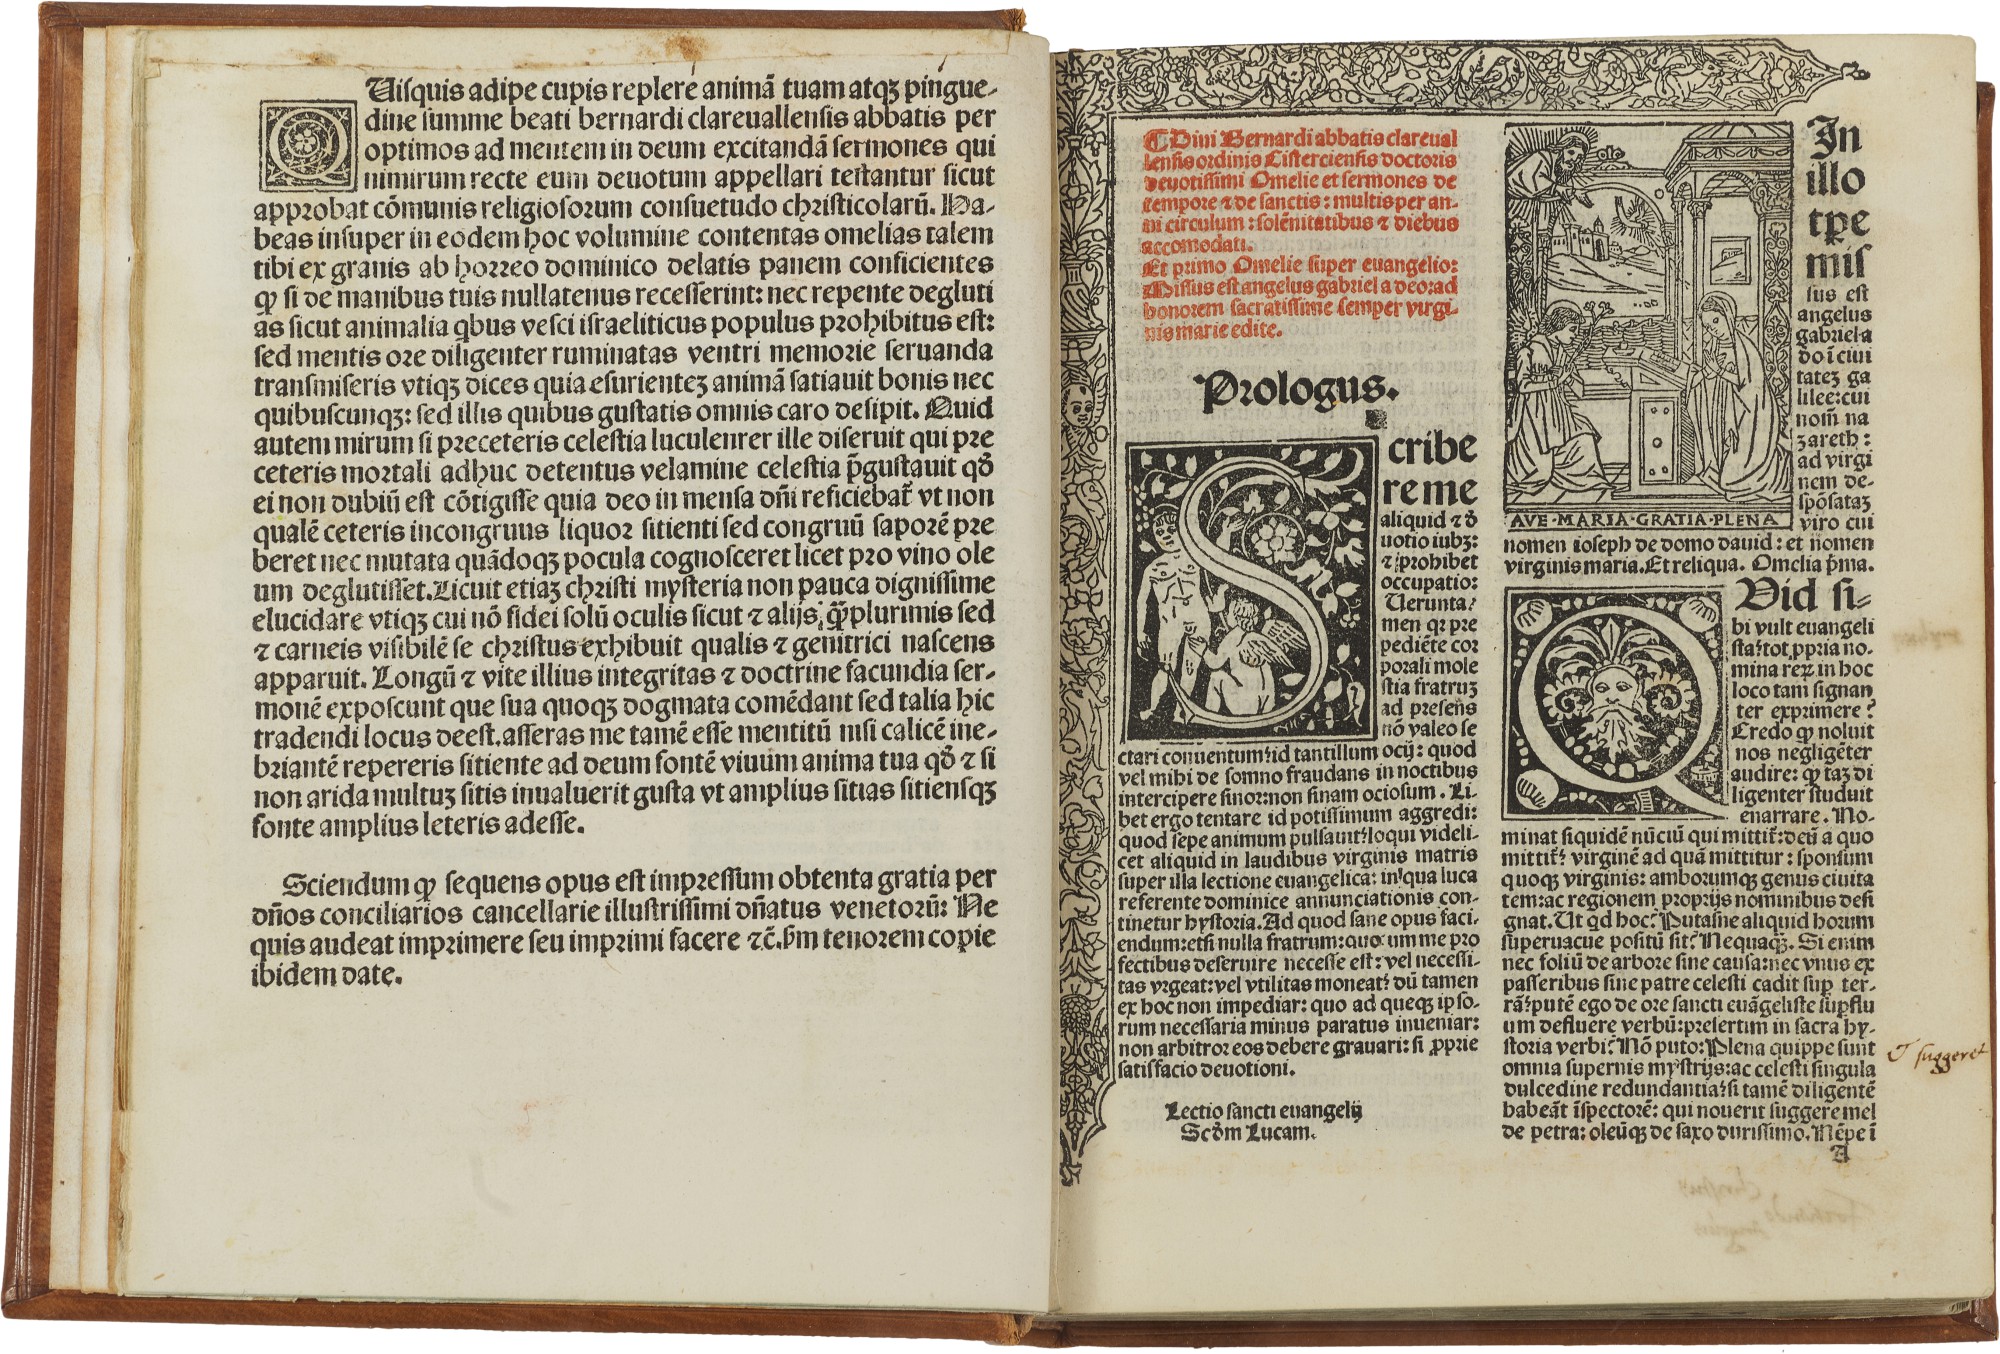 QUisquis adipe cupis replere animã tuam atqȝ pingue-
dine summe beati bernardi clareuallensis abbatis per
optimos ad mentem in deum excitandã sermones qui
nimirum recte eum deuotum appellari testantur sicut
approbat cõmunis religiosorum consuetudo christicolarũ. Ha-
beas insuper in eodem hoc volumine contentas omelias talem
tibi ex granis ab horreo dominico delatis panem conficientes
ꝙ si de manibus tuis nullatenus recesserint: nec repente degluti
as sicut animalia q̃bus vesci israeliticus populus prohibitus est:
sed mentis ore diligenter ruminatas ventri memorie seruanda
transmiseris vtiqȝ dices quia esurienteȝ animã satiauit bonis nec
quibuscunqȝ: sed illis quibus gustatis omnis caro desipit. Quid
autem mirum si preceteris celestia luculenrer ille diseruit qui pre
ceteris mortali adhuc detentus velamine celestia p̃gustauit qđ
ei non dubiũ est cõtigisse quia deo in mensa dñi reficiebat᷑ vt non
qualẽ ceteris incongruus liquor sitienti sed congruũ saporẽ pre
beret nec mutata quãdoqȝ pocula cognosceret licet pro vino ole
um deglutisset. Licuit etiaȝ christi mysteria non pauca dignissime
elucidare vtiqȝ cui nõ fidei solũ oculis sicut ⁊ alijs ꝙ̃plurimis sed
⁊ carneis visibilẽ se christus exhibuit qualis ⁊ genitrici nascens
apparuit. Longũ ⁊ vite illius integritas ⁊ doctrine facundia ser-
monẽ exposcunt que sua quoqȝ dogmata comẽdant sed talia hic
tradendi locus deest. asseras me tamẽ esse mentitũ nisi calicẽ ine-
briantẽ repereris sitiente ad deum fontẽ viuum anima tua qđ ⁊ si
non arida multuȝ sitis inualuerit gusta vt amplius sitias sitiensqȝ
fonte amplius leteris adesse.
Sciendum ꝙ sequens opus est impressum obtenta gratia per
dños conciliarios cancellarie illustrissimi dñatus venetorũ: Ne
quis audeat imprimere seu imprimi facere ⁊c̃. s̃m tenorem copie
ibidem date.
¶ Diui Bernardi abbatis clareual
lensis ordinis Cisterciensis doctoris
deuotissimi Omelie et sermones de
tempore ⁊ de sanctis: multis per an-
ni circulum: solẽnitatibus ⁊ diebus
accomodati.
Et primo Omelie super euangelio:
Missus est angelus gabriel a deo: ad
honorem sacratissime semper virgi-
nis marie edite.
Prologus.
Scribe
re me
aliquid ⁊ đ
uotio iubȝ:
⁊ prohibet
occupatio:
Verunta/
men qꝛ pre
pediẽte cor
porali mole
stia fratruȝ
ad presens
nõ valeo se
ctari conuentum: id tantillum ocij: quod
vel mihi de somno fraudans in noctibus
intercipere sinor: non sinam ociosum. Li-
bet ergo tentare id potissimum aggredi:
quod sepe animum pulsauit: loqui videli-
cet aliquid in laudibus virginis matris
super illa lectione euangelica: in qua luca
referente dominice annunciationis con-
tinetur hystoria. Ad quod sane opus faci-
endum: etsi nulla fratrum: quorum me pro
fectibus deseruire necesse est: vel necessi-
tas vrgeat: vel vtilitas moneat: dũ tamen
ex hoc non impediar: quo ad queqȝ ipso-
rum necessaria minus paratus inueniar:
non arbitror eos debere grauari: si ꝓprie
satisfacio deuotioni.
Lectio sancti euangelij
Scđm Lucam.
AVE·MARIA·GRATIA·PLENA
In
illo
tp̃e
mis
sus est
angelus
gabriel a
do ĩ ciui
tateȝ ga
lilee: cui
nom̃ na
zareth:
ad virgi
nem de-
spõsataȝ
viro cui
nomen ioseph de domo dauid: et nomen
virginis maria. Et reliqua. Omelia p̃ma.
QVid si-
bi vult euangeli
sta: tot ꝓpria no-
mina reꝝ in hoc
loco tam signan
ter exprimere?
Credo ꝙ noluit
nos negligẽter
audire: ꝙ taȝ di
ligenter studuit
enarrare. No-
minat siquidẽ nũciũ qui mittit᷑: deũ a quo
mittit᷑: virginẽ ad quã mittitur: sponsum
quoqȝ virginis: amborumqȝ genus ciuita
tem: ac regionem proprijs nominibus desi
gnat. Ut qđ hoc? Putasne aliquid horum
superuacue positũ sit? Nequaqȝ. Si enim
nec foliũ de arbore sine causa: nec vnus ex
passeribus sine patre celesti cadit suꝑ ter-
rã: putẽ ego de ore sancti euãgeliste suꝑflu
um defluere verbũ: presertim in sacra hy-
storia verbi? Nõ puto: Plena quippe sunt
omnia supernis mystrijs: ac celesti singula
dulcedine redundantia: si tamẽ diligentẽ
habeãt ĩspectorẽ: qui nouerit suggere mel
de petra: oleũqȝ de saxo durissimo. Nẽpe ĩ
A
suggeret